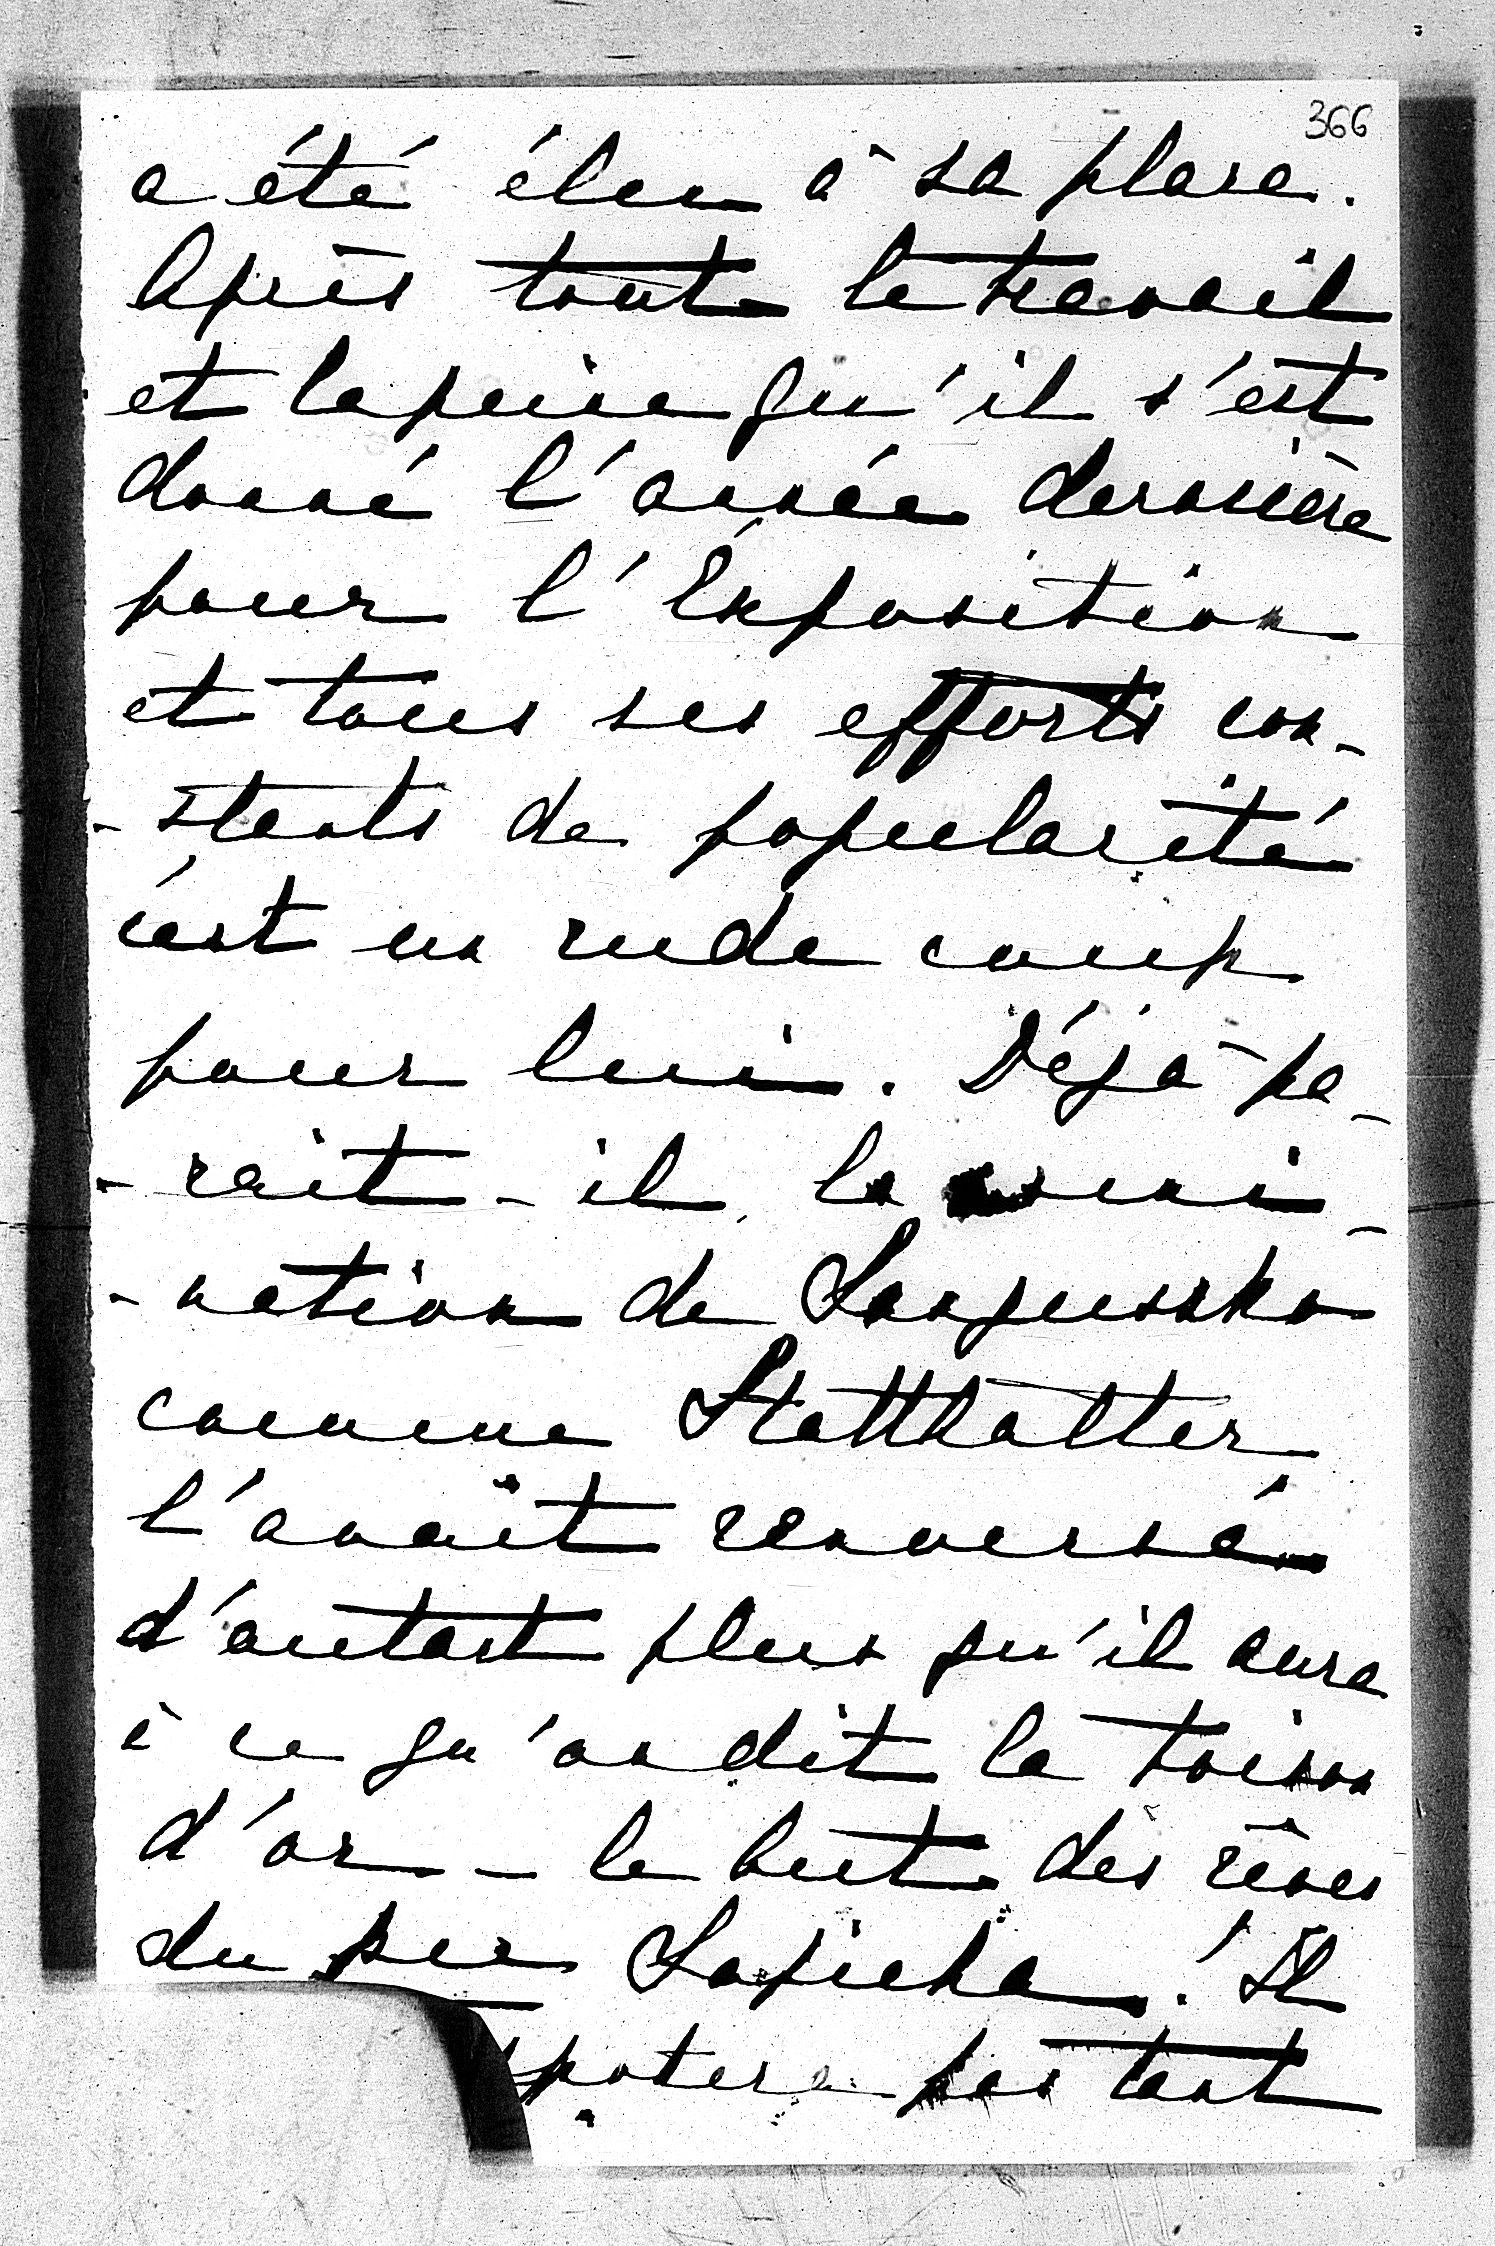 366
a été élu à sa place.
Après tout le travail
et la peine qu'il s'est
donné l'année dernière
pour l'Exposition
et tous ses efforts con-
-stants de popularité
c'est un rude coup
pour lui. Déjà pa-
-rait-il, la nomi-
-nation de Sanguszko
comme Statthalter
l'avait renversé
d'autant plus qu'il aura
à ce qu'on dit la toison
d'or - le but des rêves
du pce Sapieha! Il
pas tant